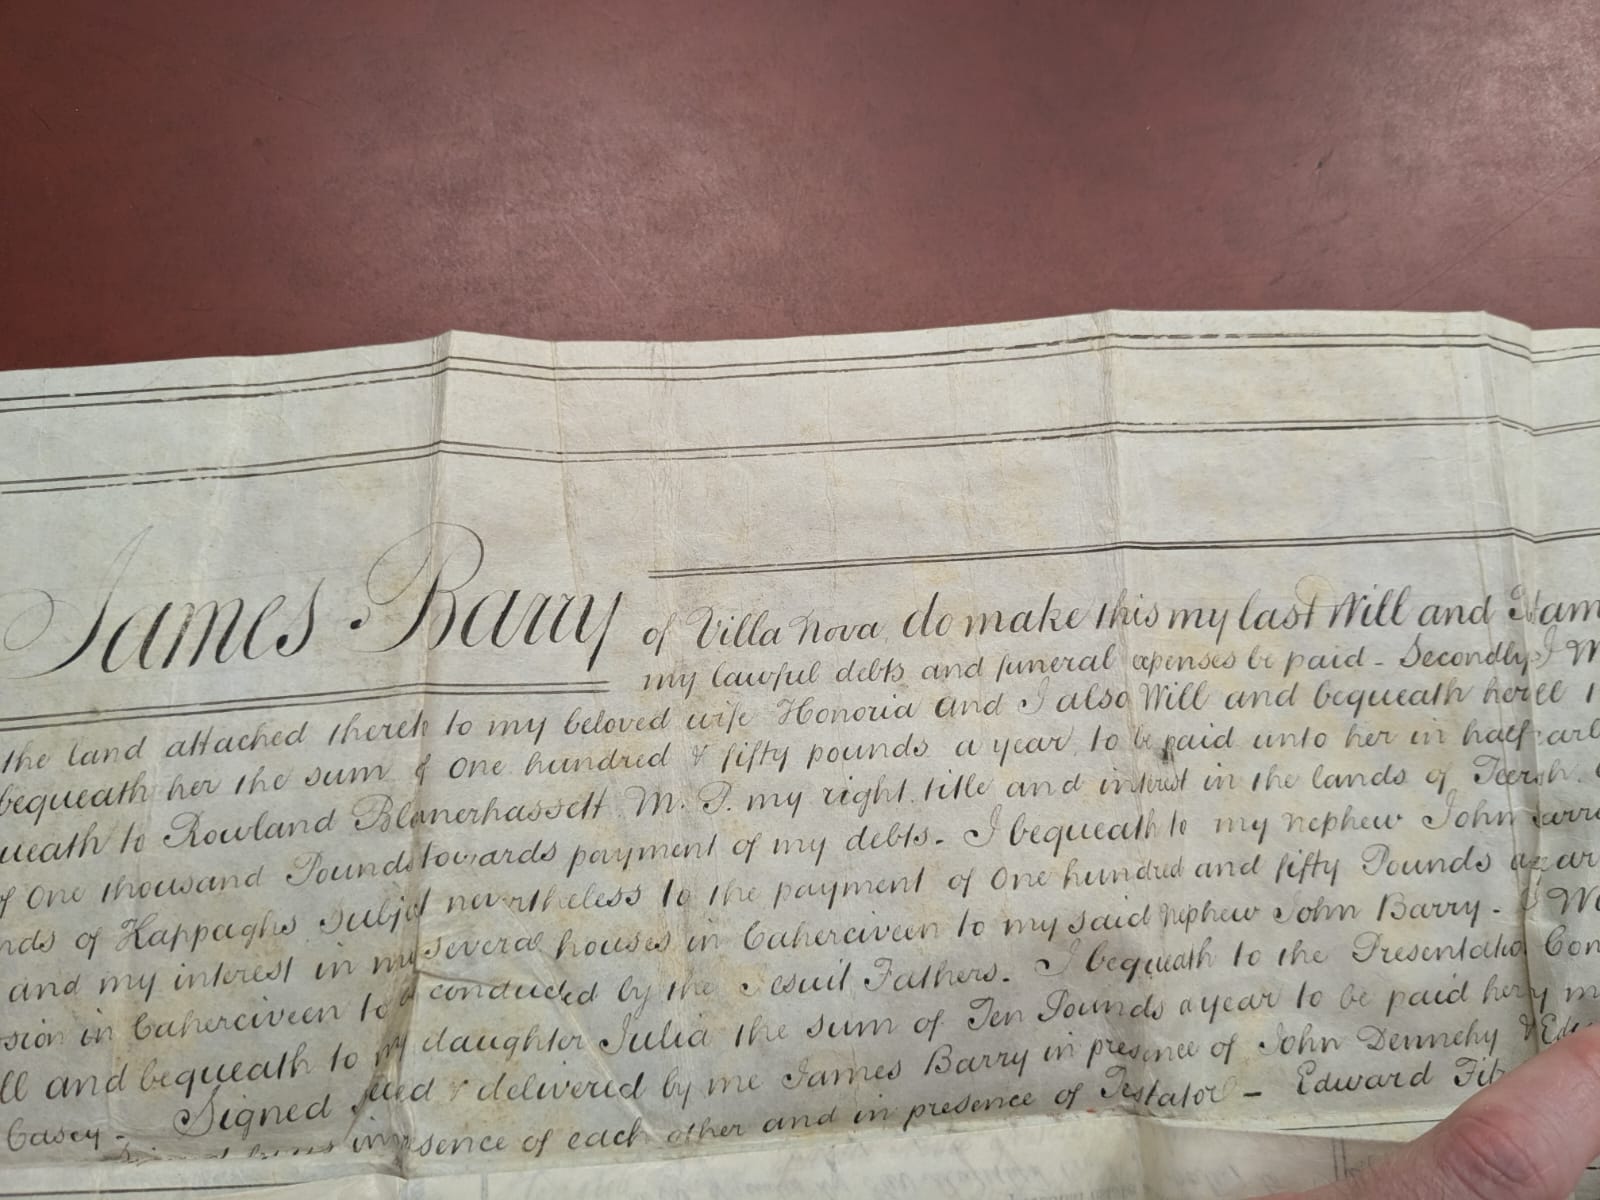 James Barry of Villa Nova do make this my last Will and
my lawful debts and funeral expenses be paid - Secondly I
the land attached thereto to my beloved wife Honoria and I also Will and bequeath her
bequeath her the sum of One hundred & fifty pounds a year, to be paid unto her in half
ueath to Rowland Blanerhassett M. P. my right title and interest in the lands of
of One thousand Pounds towards payment of my debts. I bequeath to my nephew John
nds of Kappaghs subject nevertheless to the payment of One hundred and fifty Pounds a year
and my interest in my several houses in Caherciveen to my said nephew John Barry - I
sion in Caherciveen to conducted by the Jesuit Fathers. I bequeath to the Presentation Con
ll and bequeath to my daughter Julia the sum of Ten Pounds a year to be paid her
Casey - Signed sealed & delivered by me James Barry in presence of John Dennehy &
in presence of each other and in presence of Testator - Edward Fitz